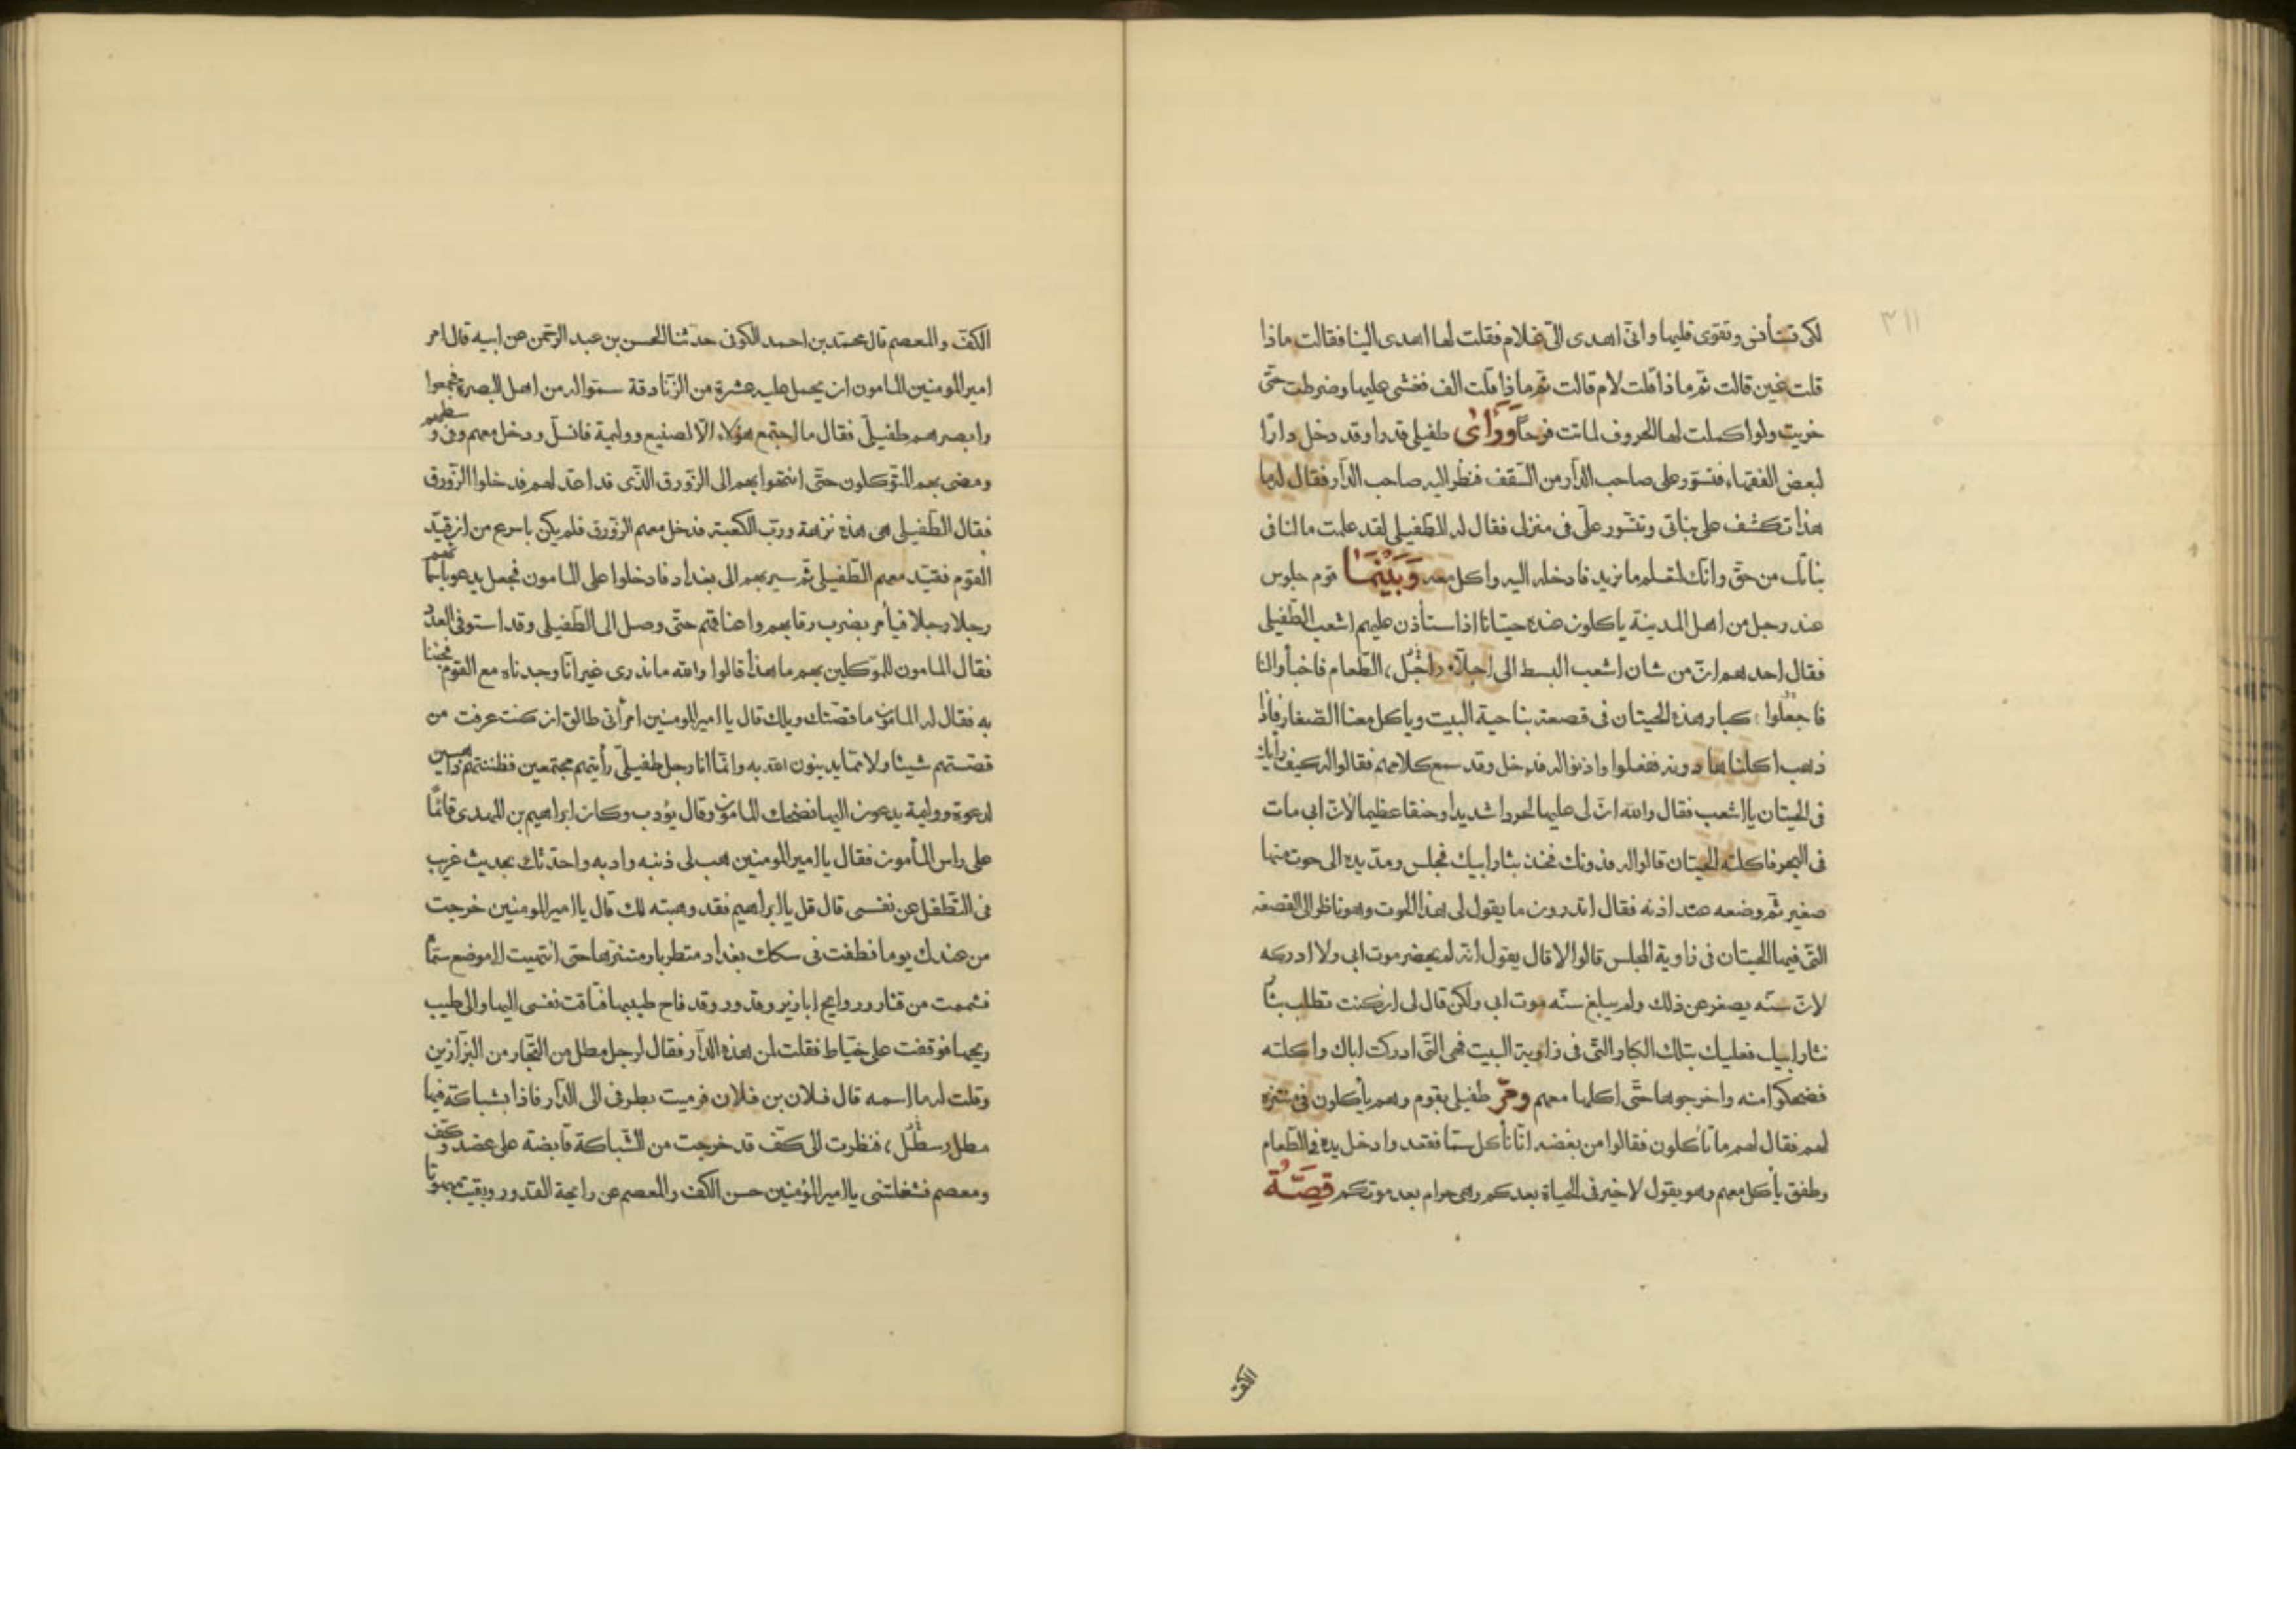 ٣١١
لكى تستأنس وتقوى قلبها وانى اهدى الىّ غلام فقلت لها اهدى الينا فقالت ماذا
قلت غين قالت ثم ماذا قلت لام قالت ثم ماذا قلت الف فغشى عليها وضرطت حتى
خريت ولو اكملت لها الحروف لماتت فرحًا وراى طفيلى قدرا وقد دخل دارًا
لبعض الفقهاء فتسوّر على صاحب الدار من السّقف فنظر اليه صاحب الدار فقال له يا
هذا تكشف على بناتى وتتسّور علىّ فى منزلى فقال له الطفيلى لقد علمت ما لنا فى
بناتك من حقّ وانّك لتعلم ما نريد فادخله اليه واكل معه وَبَيْنَمَا قوم جلوس
عند رجل من اهل المدينة ياكلون عنده حيتانا اذا ستأذن عليهم اشعب الطّفيلى
فقال احدهم انّ من شان اشعب البسط الى اجلّاء الطّعام فاخبأوا لنا
فاجعلوا كبار هذه الحيتان فى قصعة بناحية البيت وياكل معنا الصّغار فاذا
ذهب اكلناها دونه ففعلوا واذنوا له فدخل وقد سمع كلامهم فقالوا له كيف رأيك
فى الحيتان يا اشعب فقال والله انّ لى عليها لحردا شديدا وحنقا عظيما لانّ ابى مات
فى البحر فاكلته الحيتان قالوا له فدونك فخذ بثار ابيك فجلس ومدّ يده الى حوت منها
صغير ثم وضعه عند اذنه فقال اتدرون ما يقول لى هذا الحوت وهو ناظر الى القصعة
التى فيها الحيتان فى زاوية المجلس قالوا لا قال يقول انه لم يحضر موت ابى ولا ادركه
لانّ سنّه يصغر عن ذلك ولم يبلغ سنّه موت ابى ولكن قال لى ان كنت تطلب بثا
بثار ابيك فعليك بتلك الكبار التى فى زاوية البيت فهى التى ادركت اباك واكلته
فضحكوا منه واخرجوها حتّى اكلها معهم ومرّ طفيلى بقوم وهم يأكلون فى منتزه
لهم فقال لهم ما تأكلون فقالوا من بغضه انّا نأكل سمّا فقعد وادخل يده فى الطّعام
وطفق يأكل معهم وهو يقول لا خير فى الحياة بعدكم وهى حرام بعد موتكم قِصَّةُ
الكف
الكفّ والمعصم قال محمّد بن احمد الكوفى حدّثنا الحسن بن عبد الرحمن عن ابيه قال امر
امير المومنين المامون ان يحمل عليه عشرة من الزّنادقة سمّوا له من اهل البصرة فجمعوا
وابصرهم طفيلىّ فقال ما اجتمع هؤلاء الّا لصنيع ووليمة فانسلّ ودخل معهم وفى وسطهم
ومضى بهم المتّوكلون حتّى انتهوا بهم الى الزّورق الذّى قد اعدّ لهم فدخلوا الزّورق
فقال الطّفيلى هى هذه نزهة وربّ الكعبة فدخل معهم الزّورق فلم يكن باسرع من ان قيّد
القوم فقيّد معهم الطّفيلى ثم سير بهم الى بغداد فادخلوا على المامون فجعل يدعو باسمائهم
رجلا رجلا فيأمر بضرب رقابهم واعناقهم حتّى وصل الى الطّفيلى وقد استوفى العدّة
فقال المامون للموّكلين بهم ما هذا قالوا والله ما ندرى غير انّا وجدناه مع القوم فجئنا
به فقال له المامون ما قصّتك ويلك قال يا امير المومنين امرأتى طالق ان كنت عرفت من
قصّتهم شيئا ولا ممّا يدينون الله به وانّما انا رجل طفيلىّ رأيتهم مجتمعين فظننتهم ذاهبين
لدعوة ووليمة يدعون اليها فضحك المامون وقال يؤدب وكان ابراهيم بن المهدى قائمًا
على راس المأمون فقال يا امير المومنين هب لى ذنبه وادبه واحدّثك بحديث غريب
فى التّطفل عن نفسى قال قل يا ابراهيم فقد وهبته لك قال يا امير المومنين خرجت
من عندك يوما فطفت فى سكك بغداد متطربا ومتنزها حتى انتهيت الى موضع سمّا
فشممت من قتار وروايح ابازير وقدور وقد فاح طيبها فتاقت نفسى اليها والى طيب
ريحها فوقفت على خيّاط فقلت لمن هذه الدّار فقال لرجل مطل من التّجار من البزّازين
وقلت له ما اسمه قال فلان بن فلان فرميت بطرفى الى الدّار فاذا بشباكة فيها
مطل فنظرت الى كفّ قد خرجت من الشّباكة قابضة على عضد وكفّ
ومعصم فشغلتنى يا امير المؤمنين حسن الكفّ والمعصم عن رايحة القدور وبقيت مبهوتا